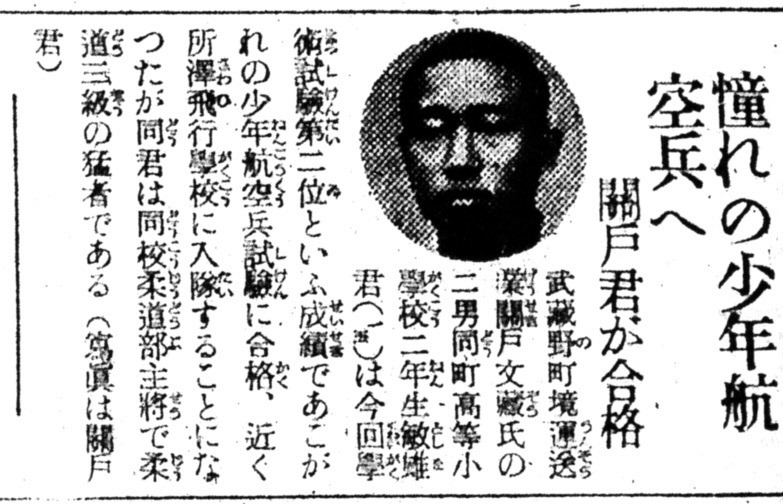 憧れの少年航
空兵へ
關戶君が合格
武藏野町境運送
業關戶文藏氏の
二男同町高等小
學校二年生敏雄
君()は今回學
術試驗第二位といふ成績であこが
れの少年航空兵試驗に合格、近く
所澤飛行學校に入隊することにな
つたが同君は同校柔道部主將で柔
道三級の猛者である(寫眞は關戶
君)